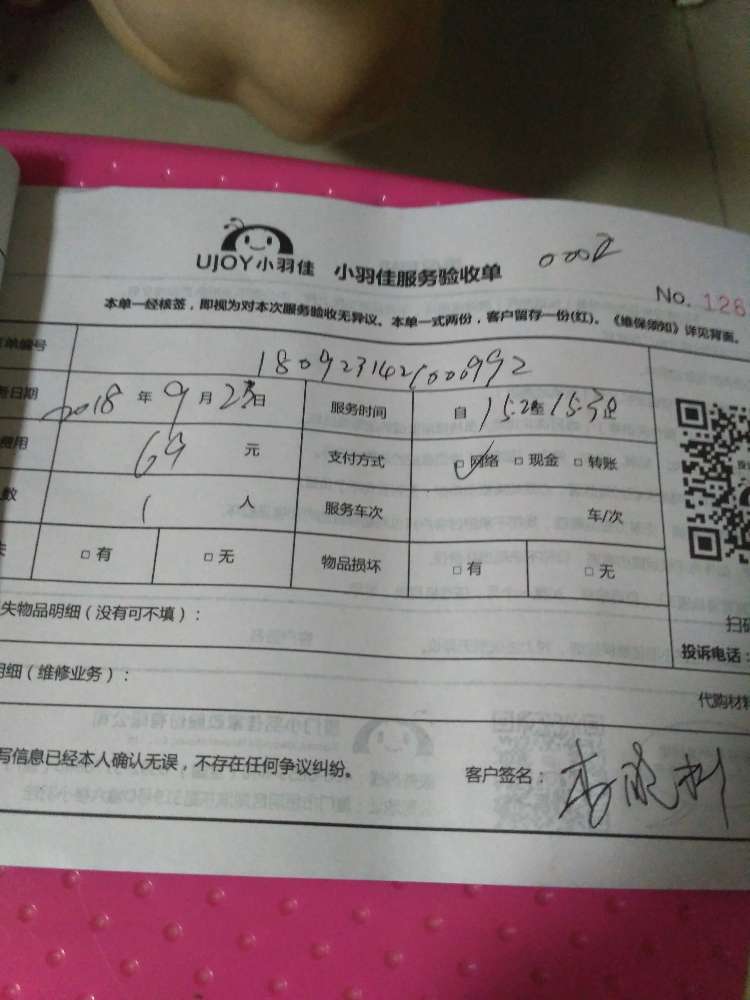 UJOY小羽佳 小羽佳服务验收单 0002
No. 128
本单一经核签，即视为对本次服务验收无异议、本单一式两份，客户留存一份(红)。《维保须知》详见背面。
单编号 1809231421000992
日期 2018 年 9 月 23 日 服务时间 自 15:20 至 15:30 止
费用 69 元 支付方式 □网络 □现金 □转账
数 1 人 服务车次 车/次
失 □有 □无 物品损坏 □有 □无
失物品明细（没有可不填）：
扫码
投诉电话：
明细（维修业务）：
代购材料
写信息已经本人确认无误，不存在任何争议纠纷。 客户签名：